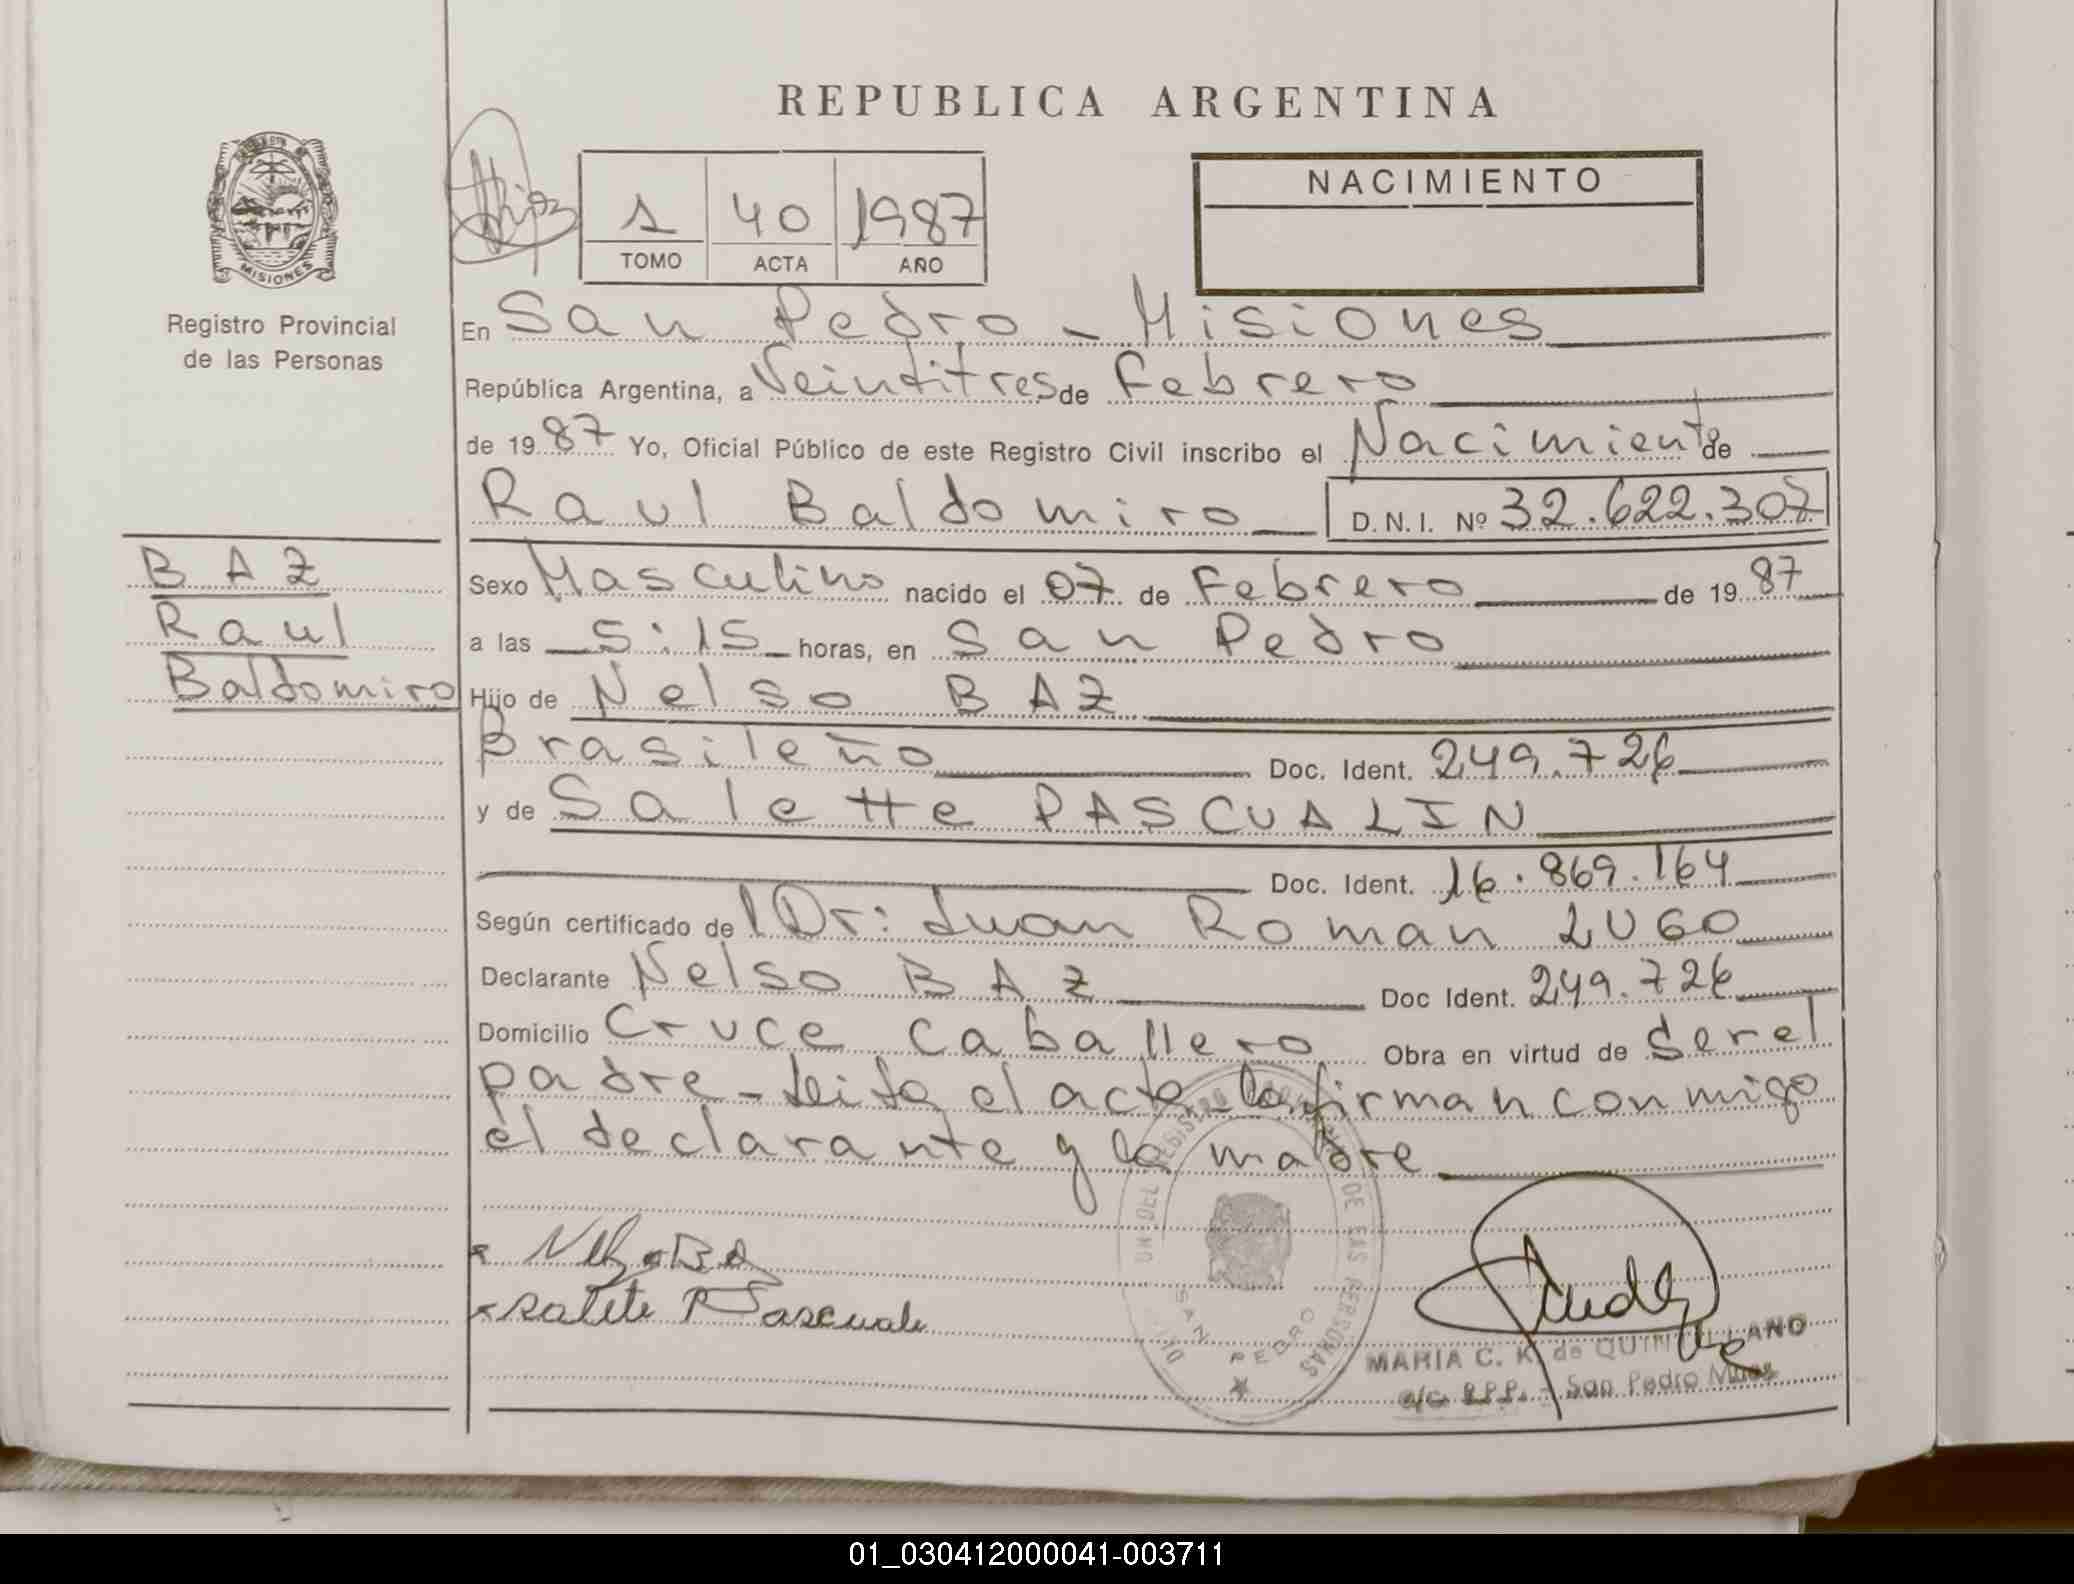 REPUBLICA ARGENTINA
MISIONES
Registro Provincial
de las Personas
1 40 1987
TOMO ACTA AÑO
NACIMIENTO
En San Pedro - Misiones
República Argentina, a Veintitres de Febrero
de 19 87 Yo, Oficial Público de este Registro Civil inscribo el Nacimiento de
Raul Baldomiro D.N.I. Nº 32.622.307
BAZ
Raul
Baldomiro
Sexo Masculino nacido el 07 de Febrero de 19 87
a las 5:15 horas, en San Pedro
Hijo de Nelso BAZ
Brasileño Doc. Ident. 249.726
y de Salette PASCUALIN
Doc. Ident. 16.869.164
Según certificado de Dr: Juan Roman LUGO
Declarante Nelso BAZ Doc Ident. 249.726
Domicilio Cruce Caballero Obra en virtud de ser el
padre - Leida el acta la firman conmigo
el declarante y la madre
Salete Pascuali
REGISTRO DE LAS PERSONAS
SAN PEDRO
MARIA C. K. de QUINTILLANO
San Pedro Mnes
01_030412000041-003711